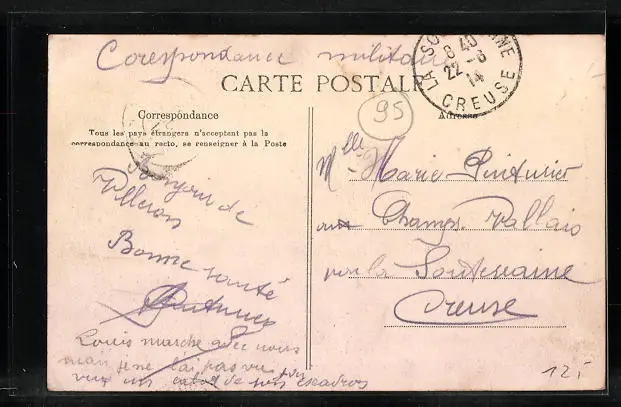 Corespondance militaire
CARTE POSTALE
LA SOUTERRAINE
8 40
22 - 8
14
CREUSE
95
Correspondance
Adresse
Tous les pays étrangers n'acceptent pas la
correspondance au recto, se renseigner à la Poste
Bonjour de
Villeron
Bonne santé
Louis marche avec nous
mais je ne l'ai pas vu
Mlle Marie Pinturier
aux Champs Vallais
par la Souterraine
Creuse
12,-